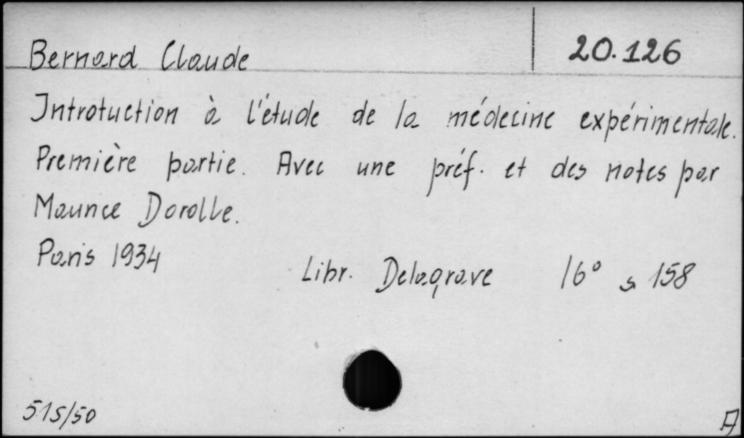 Bernard Claude 20.126
Introtuction à l'étude de la médecine expérimentale.
Première partie. Avec une préf. et des notes par
Maurice Dorolle.
Paris 1934 Libr. Delagrave 16° s 158
515/50 A